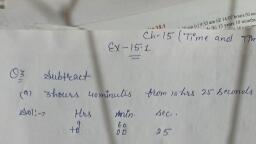 Ch-15 (Time and
Ex-15.1
Q3 Subtract
(a) 3hours 40minutes from 10 hrs 25 seconds
Sol:→ Hrs min. sec.
9 60
10 00 25